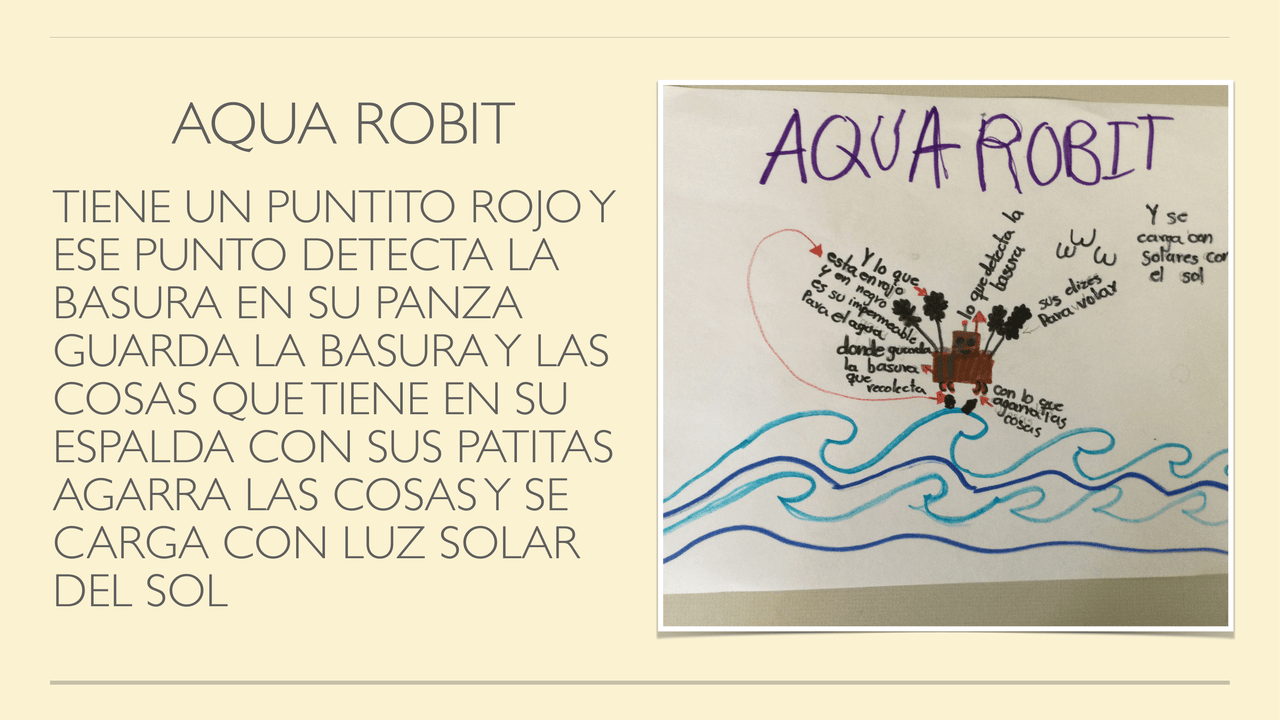 AQUA ROBIT
TIENE UN PUNTITO ROJO Y
ESE PUNTO DETECTA LA
BASURA EN SU PANZA
GUARDA LA BASURA Y LAS
COSAS QUE TIENE EN SU
ESPALDA CON SUS PATITAS
AGARRA LAS COSAS Y SE
CARGA CON LUZ SOLAR
DEL SOL
AQUA ROBIT
Y lo que
esta en rojo
y en negro
es su impermeable
Para el agua
donde guarda
la basura
que
recolecta
lo que detecta la
basura
sus
Para volar
Y se
carga con
Solares con
el sol
con lo que
agarra las
cosas